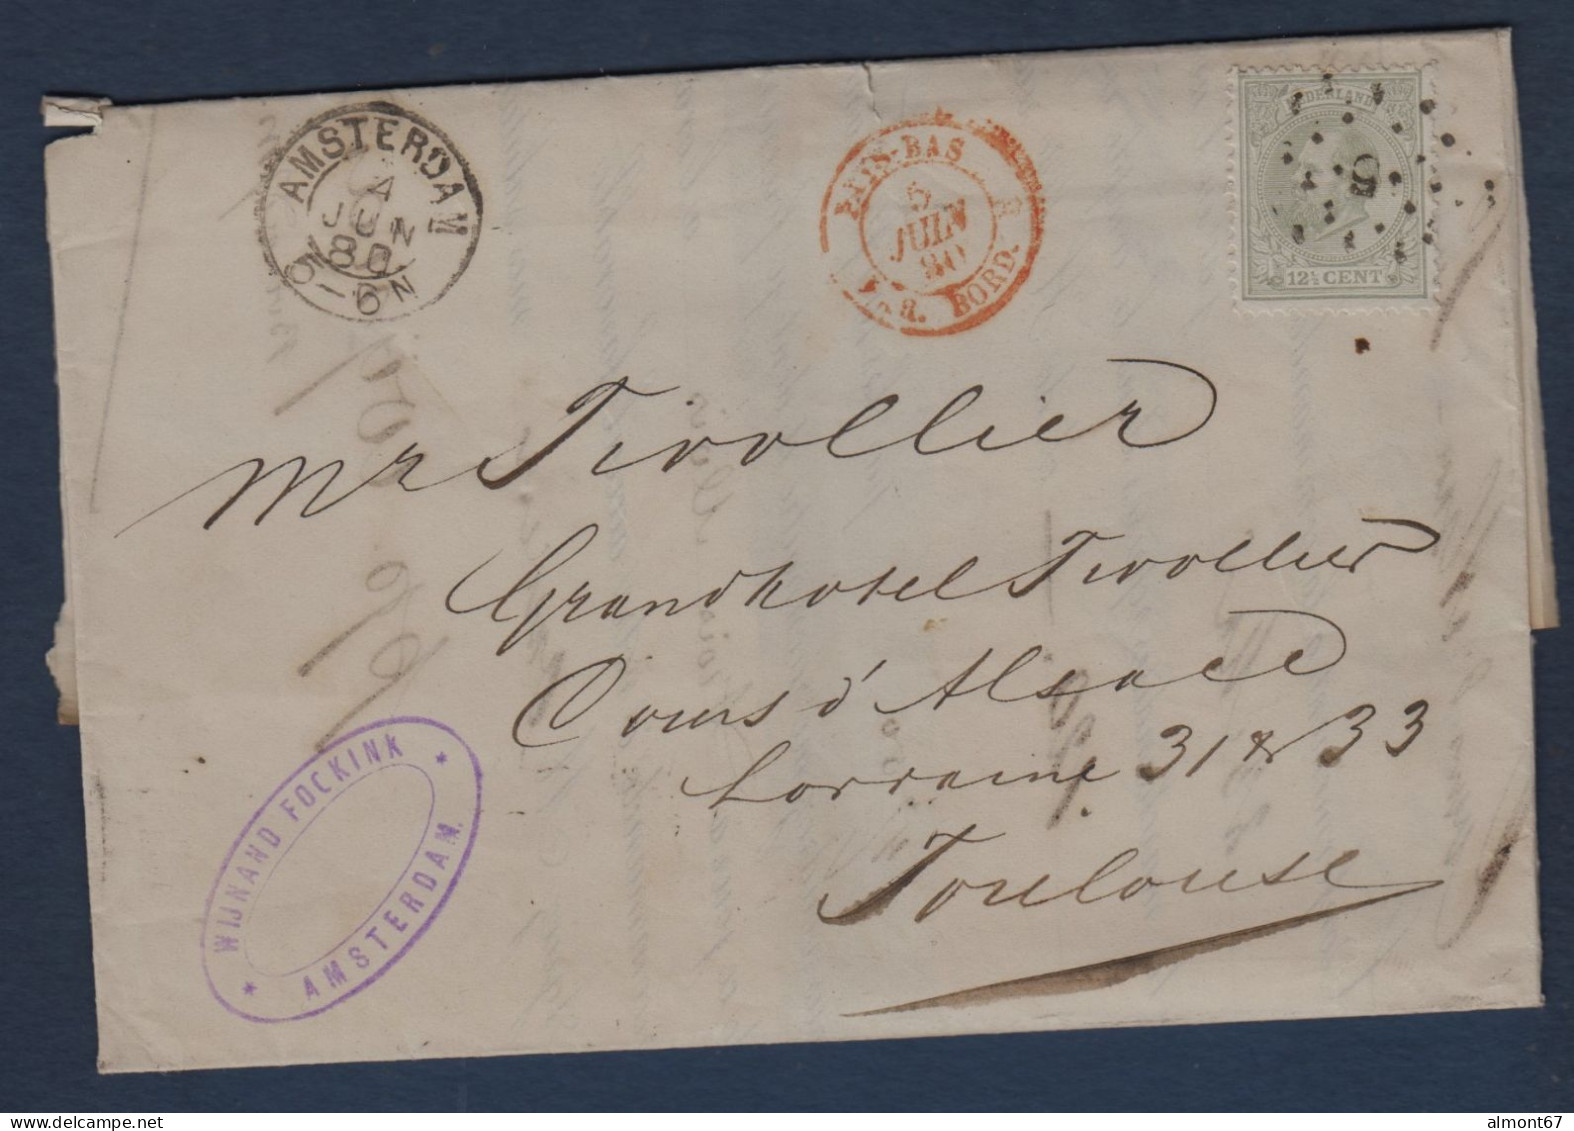 AMSTERDAM
4
JUN
80
5-6N
PAYS-BAS
5
JUIN
80
BORD.
NEDERLAND
5
12½ CENT
Mr Tivollier
Grandhotel Tivollier
Cours d'Alsace
Lorraine 31 & 33
Toulouse
WIJNAND FOCKINK
* AMSTERDAM. *
almont67